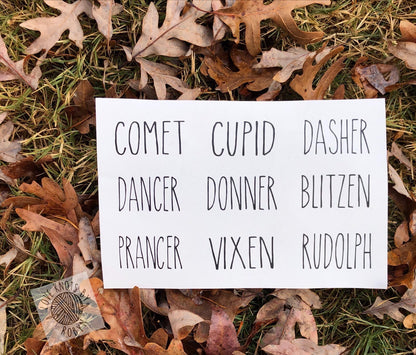 COMET CUPID DASHER
DANCER DONNER BLITZEN
PRANCER VIXEN RUDOLPH